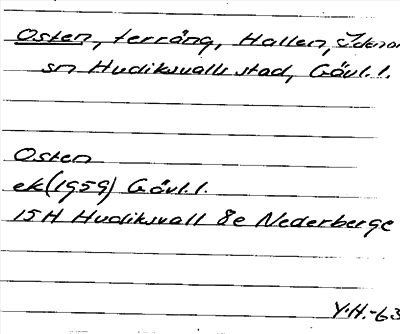 Osten, terräng, Hallen, Idenor
sn Hudiksvalls stad, Gävl.l.
Osten
ek (1959) Gävl.l.
15H Hudiksvall 8e Nederberge
Y.H.-63